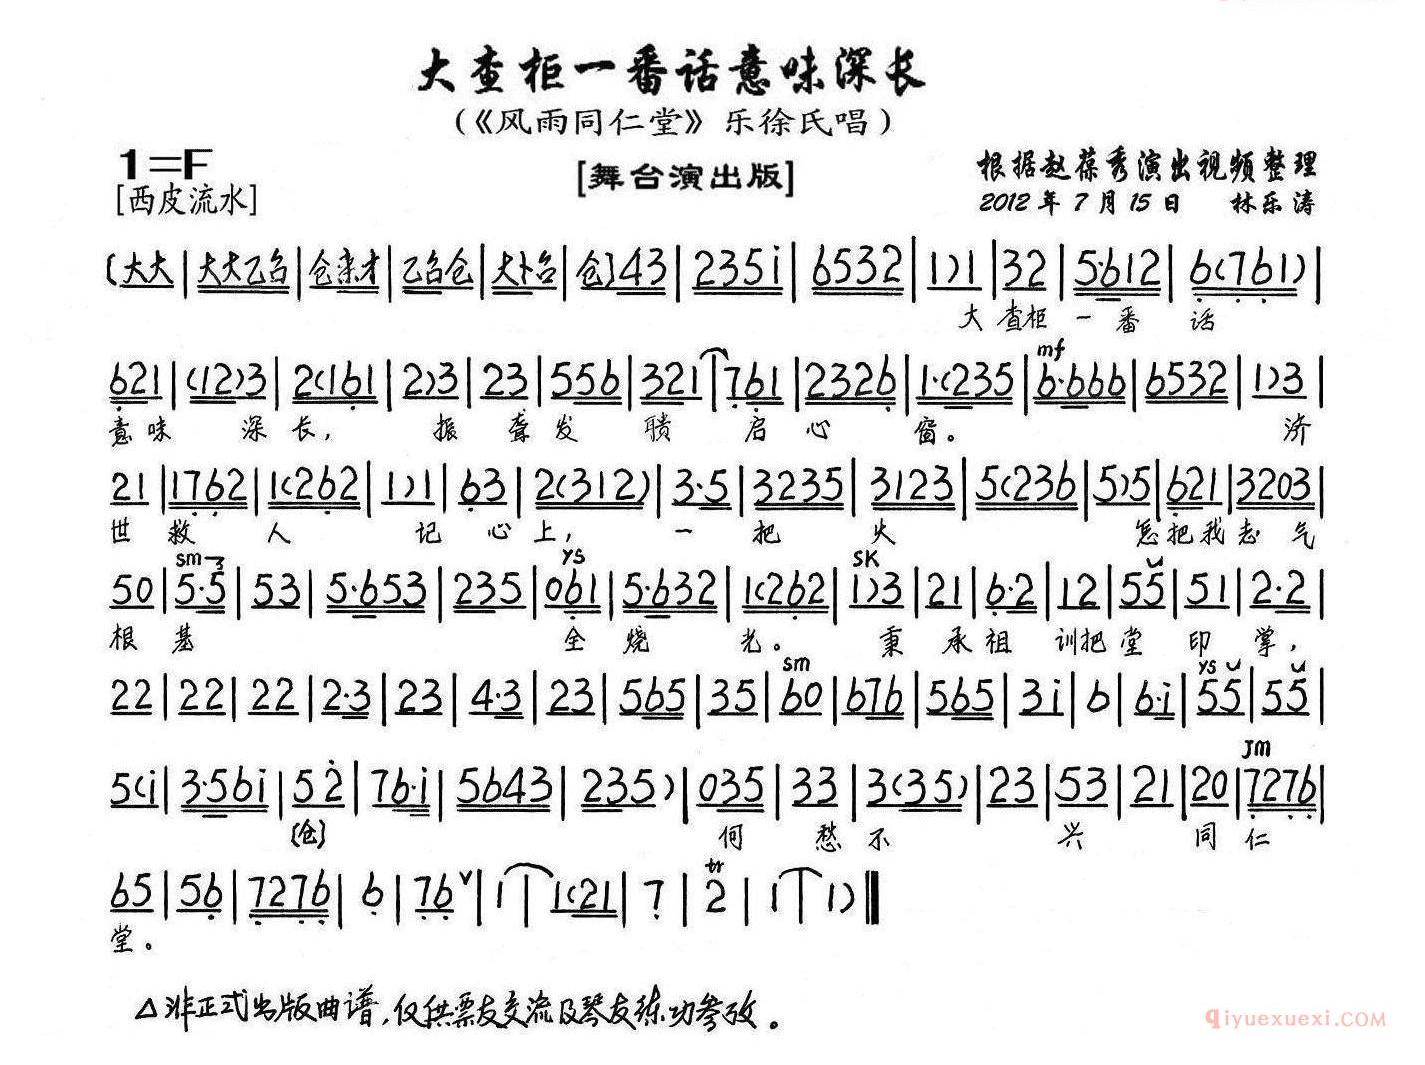 大查柜一番话意味深长
(《风雨同仁堂》乐徐氏唱)
1=F
[舞台演出版]
根据赵葆秀演出视频整理
[西皮流水]
2012年7月15日 林乐涛
(大大 | 大大乙台 | 仓来才 | 乙台仓 | 大卜台 | 仓)43 | 235i | 6532 | 1)1 | 32 | 5·612 | 6(761) |
大 查柜 一 番 话
621 | (12)3 | 2(161 | 2)3 | 23 | 556 | 321 | 761 | 2326 | 1·(235 | mf 6·666 | 6532 | 1)3 |
意味 深长, 振 聋发 聩 启心 窗。 济
21 | 1762 | 1(262 | 1)1 | 63 | 2(312) | 3·5 | 3235 | 3123 | 5(236 | 5)5 | 621 | 3203 |
世 救 人 记 心上, 一 把 火 怎把我志气
sm YS SK
50 | 5·5 | 53 | 5·653 | 235 | 061 | 5·632 | 1(262 | 1)3 | 21 | 6·2 | 12 | 55 | 51 | 2·2 |
根基 全烧 光。 秉承祖 训把堂 印掌,
sm YS
22 | 22 | 22 | 2·3 | 23 | 4·3 | 23 | 565 | 35 | 60 | 676 | 565 | 3i | 6 | 6·i | 55 | 55 |
JM
5(i | 3·56i | 52 | 76·i | 5643 | 235) | 035 | 33 | 3(35) | 23 | 53 | 21 | 20 | 7276 |
(仓) 何 愁不 兴 同仁
65 | 56 | 7276 | 6 | 76 | 1 | 1(21 | 7 | tr 2 | 1 | 1) ‖
堂。
△非正式出版曲谱,仅供票友交流及琴友练功参改。
qiyuexuexi.COM